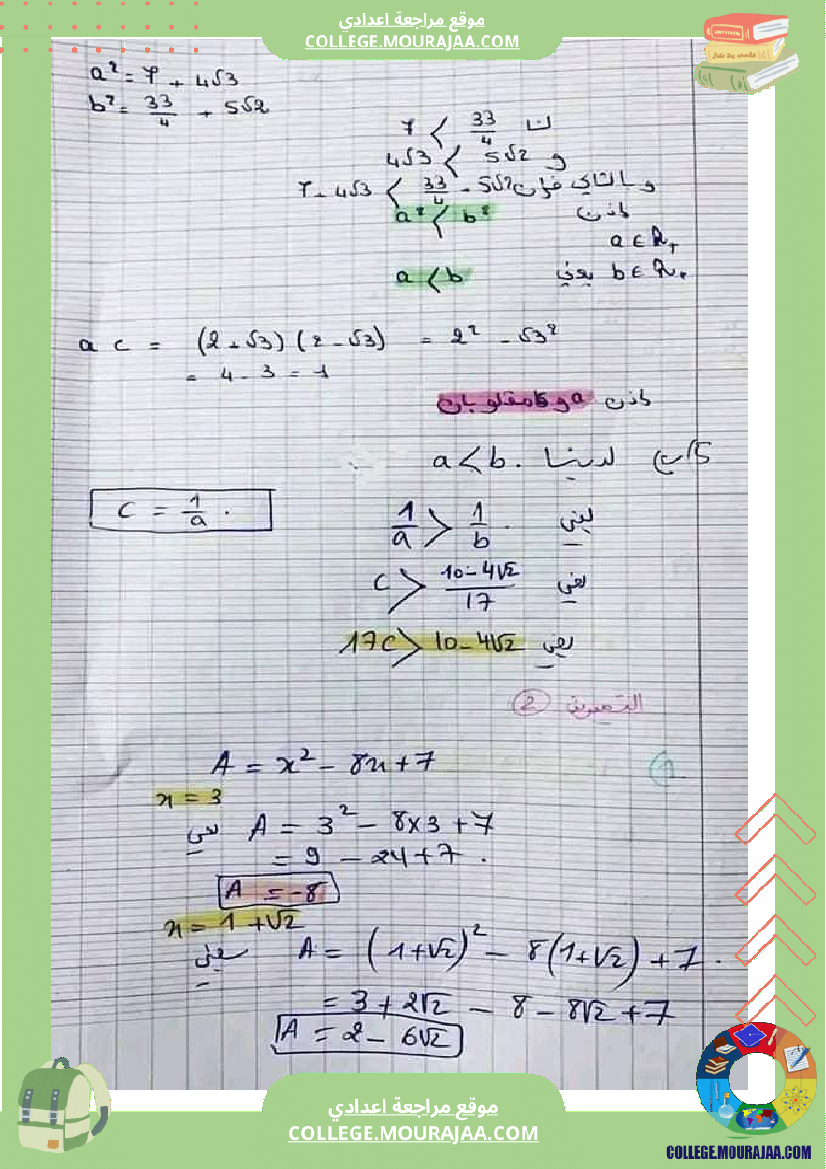 موقع مراجعة اعدادي
COLLEGE.MOURAJAA.COM
a² = 7 + 4√3
b² = 33/4 + 5√2
7 < 33/4
4√3 < 5√2 و
و بالتالي فإن 7 + 4√3 < 33/4 + 5√2
إذن a² < b²
a ∈ ℝ₊
b ∈ ℝ₊ يعني a < b
a c = (2 + √3) (2 - √3) = 2² - √3²
= 4 - 3 = 1
إذن a و c مقلوبان
ب) لدينا a < b.
c = 1/a .
يعني 1/a > 1/b .
يعني c > 10 - 4√2/17
يعني 17c > 10 - 4√2
التمرين 2
1
A = x² - 8x + 7
x = 3
يعني A = 3² - 8×3 + 7
= 9 - 24 + 7 .
A = -8
x = 1 + √2
يعني A = (1+√2)² - 8(1+√2) + 7 .
= 3 + 2√2 - 8 - 8√2 + 7
A = 2 - 6√2
موقع مراجعة اعدادي
COLLEGE.MOURAJAA.COM
COLLEGE.MOURAJAA.COM